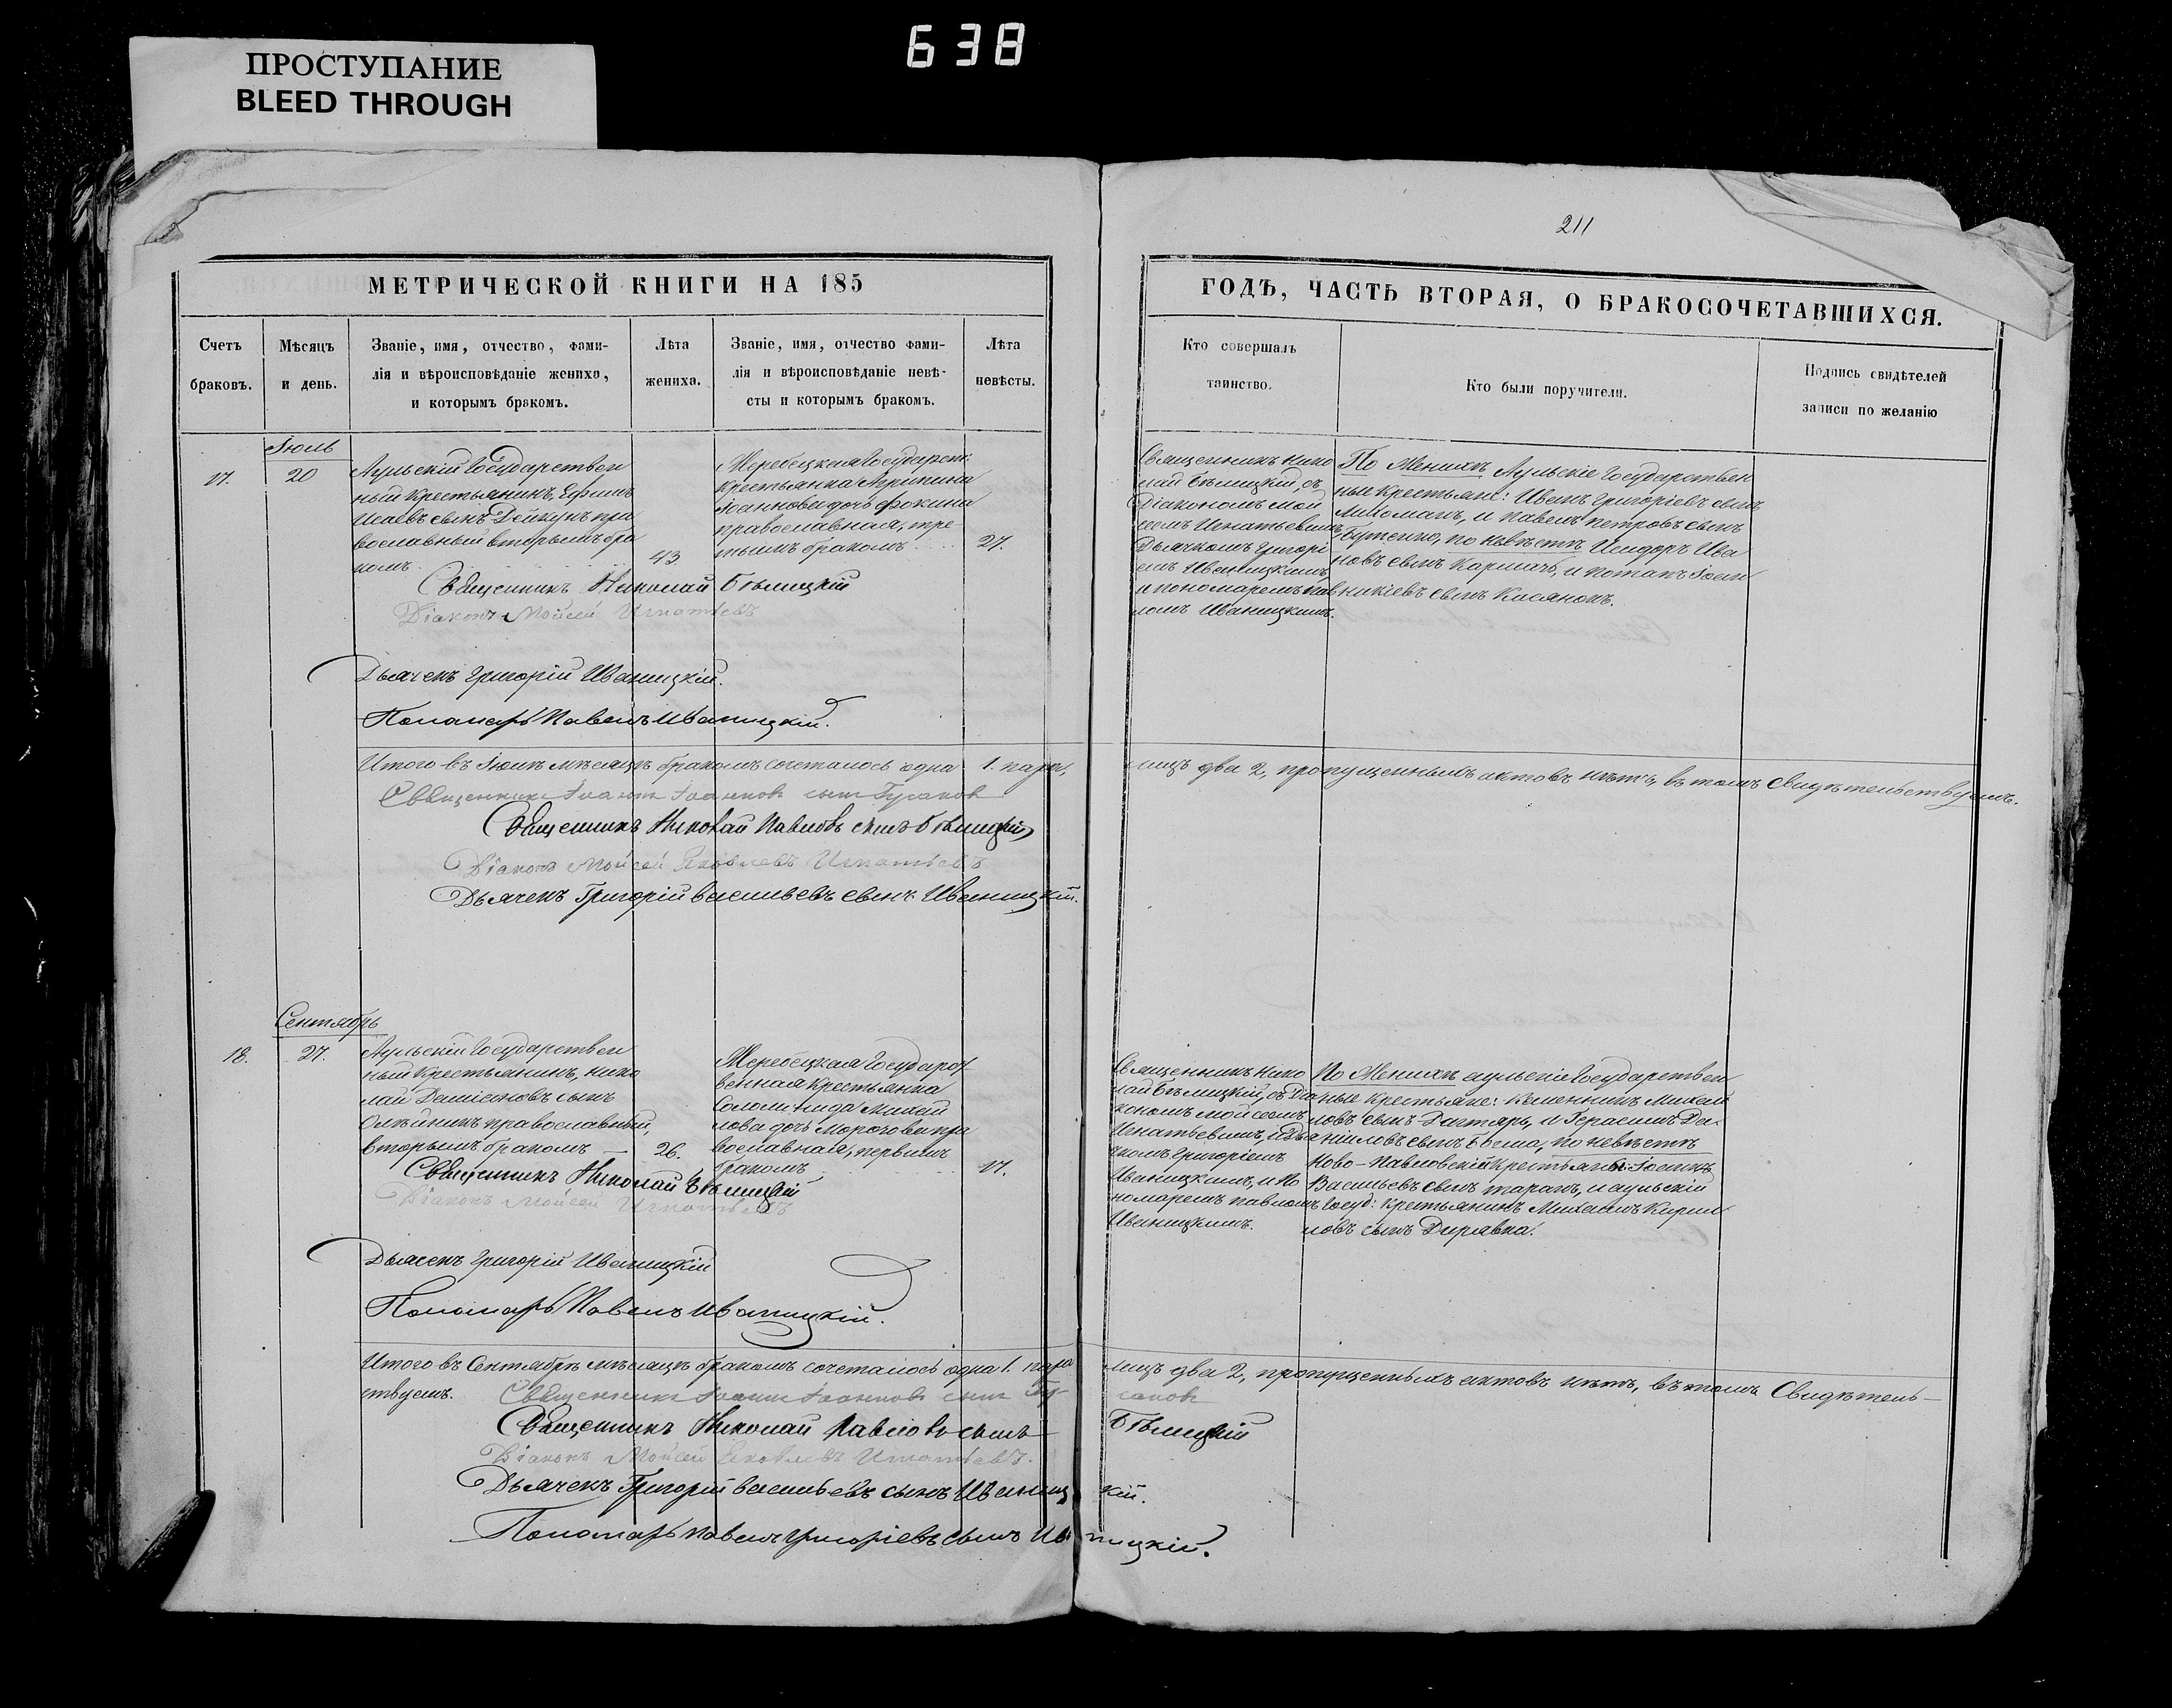 638
ПРОСТУПАНИЕ
BLEED THROUGH
211
МЕТРИЧЕСКОЙ КНИГИ НА 185
ГОДЪ, ЧАСТЬ ВТОРАЯ, О БРАКОСОЧЕТАВШИХСЯ.
Счетъ
браковъ.
Мѣсяцъ
и день.
Званіе, имя, отчество, фами-
лія и вѣроисповѣданіе жениха,
и которымъ бракомъ.
Лѣта
жениха.
Званіе, имя, отчество фами-
лія и вѣроисповѣданіе невѣ-
сты и которымъ бракомъ.
Лѣта
невѣсты.
Кто совершалъ
таинство.
Кто были поручители.
Подпись свидѣтелей
записи по желанію
Іюль
17.
20
Аульскій Государствен
ный Крестьянинъ, Ефимъ
Исаевъ сынъ Дейкунъ пра
вославный вторымъ бра
комъ
43
Меребецкая Государст:
крестьянка Агрипина
Іоаннова дочь Фокина
православная, тре
тьимъ бракомъ
27.
Священникъ Нико
лай Бѣлицкій, съ
Діакономъ Мой
сеомъ Игнатьевимъ,
Дьячкомъ Григорі
емъ Иваницкимъ,
и пономаремъ Пав
ломъ Иваницкимъ.
По Женихѣ Аульскіе Государствен
ные крестьяне: Иванъ Григоріевъ сынъ
и Павелъ Петровъ сынъ
Бутенко, по невѣстѣ Исидоръ Ива
новъ сынъ и Потапъ Іоан
никіевъ сынъ Касянокъ.
Священникъ Николай Бѣлицкій
Діаконъ Мойсей Игнатьевъ
Дьячекъ Григорій Иваницкій.
Пономарь Павелъ Иваницкій.
Итого въ Іюлѣ мѣсяцѣ бракомъ сочеталось одна 1. пара,
лицъ два 2, пропущенныхъ актовъ нѣтъ, въ томъ свидѣтельствуемъ.
Священникъ Іоаннъ Іоанновъ сынъ
Священникъ Николай Павловъ сынъ Бѣлицкій
Діаконъ Мойсей Яковлевъ Игнатьевъ
Дьячекъ Григорій Васильевъ сынъ Иваницкій.
Сентябрь
18.
27.
Аульскій Государствен
ный Крестьянинъ, Нико
лай Даміановъ сынъ
Олѣйникъ православный,
вторымъ бракомъ
26.
Меребецкая Государст
венная Крестьянка
Соломинида Михай
лова дочь Морозова пра
вославная, первымъ
бракомъ
17.
Священникъ Нико
лай Бѣлицкій, съ Діа
кономъ Мойсеомъ
Игнатьевимъ, и Дья
чкомъ Григоріемъ
Иваницкимъ, и по
номаремъ Павломъ
Иваницкимъ.
По Женихѣ аульскіе Государствен
ные крестьяне: Михай
ловъ сынъ Дегтярь, и Герасимъ Да
ніиловъ сынъ по невѣстѣ
Ново-Павловскій Крестьянинъ Іоаннъ
Васильевъ сынъ Таранъ, и аульскій
Госуд: Крестьянинъ Михаилъ Кирил
ловъ сынъ Дирявка.
Священникъ Николай Бѣлицкій
Діаконъ Мойсей Игнатьевъ
Дьячекъ Григорій Иваницкій
Пономарь Павелъ Иваницкій.
Итого въ Сентябрѣ мѣсяцѣ бракомъ сочеталось одна 1. пара
лицъ два 2, пропущенныхъ актовъ нѣтъ, въ томъ Свидѣтель-
ствуемъ.
Священникъ Іоаннъ Іоанновъ сынъ
Священникъ Николай Павловъ сынъ Бѣлицкій
Діаконъ Мойсей Яковлевъ Игнатьевъ.
Дьячекъ Григорій Васильевъ сынъ Иваницкій.
Пономарь Павелъ Григоріевъ сынъ Иваницкій.